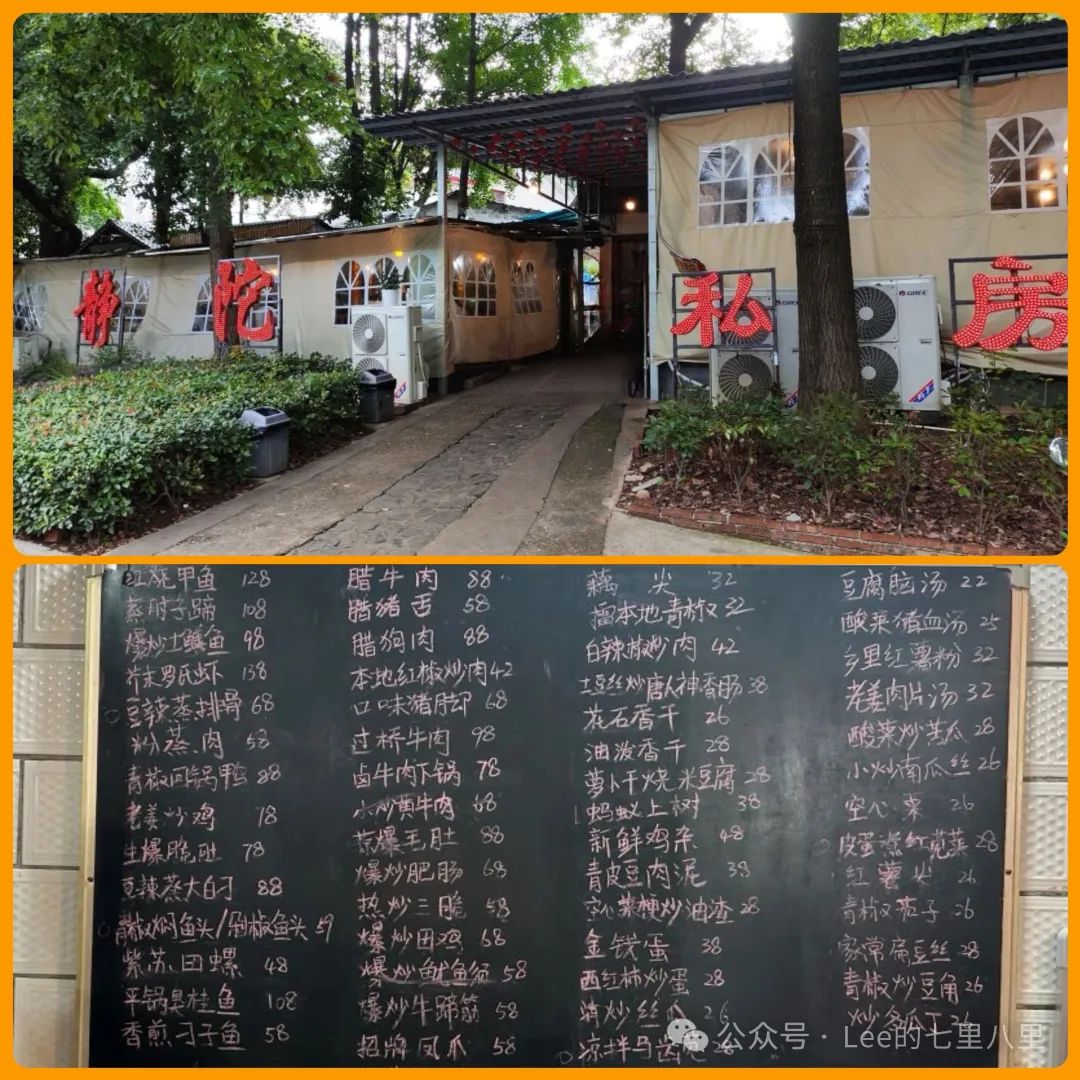 静 陀 私 房
GREE
GREE
红烧甲鱼 128
蒸肘子蹄 108
爆炒土鳝鱼 98
芥末罗氏虾 138
豆辣蒸排骨 68
粉蒸肉 58
青椒回锅鸭 88
老姜炒鸡 78
生爆脆肚 78
豆辣蒸大白刁 88
青椒焖鱼头/剁椒鱼头 59
紫苏田螺 48
平锅臭桂鱼 108
香煎刁子鱼 58
腊牛肉 88
腊猪舌 58
腊狗肉 88
本地红椒炒肉 42
口味猪脚 68
过桥牛肉 98
卤牛肉下锅 78
小炒黄牛肉 68
蒜爆毛肚 88
爆炒肥肠 68
热炒三脆 58
爆炒田鸡 68
爆炒鱿鱼须 58
爆炒牛蹄筋 58
招牌凤爪 58
藕尖 32
擂本地青椒 32
白辣椒炒肉 42
土豆丝炒唐人神香肠 38
花石香干 26
油泼香干 28
萝卜干烧米豆腐 28
蚂蚁上树 38
新鲜鸡杂 48
青皮豆肉泥 38
空心菜梗炒油渣 28
金钱蛋 38
西红柿炒蛋 28
清炒丝瓜 26
凉拌马齿
豆腐脑汤 22
酸菜猪血汤 25
乡里红薯粉 32
老姜肉片汤 32
酸菜炒苦瓜 28
小炒南瓜丝 26
空心菜 26
皮蛋煮红苋菜 28
红薯尖 26
青椒茄子 26
家常扁豆丝 28
青椒炒豆角 26
炒冬瓜丁 26
公众号 · Lee的七里八里